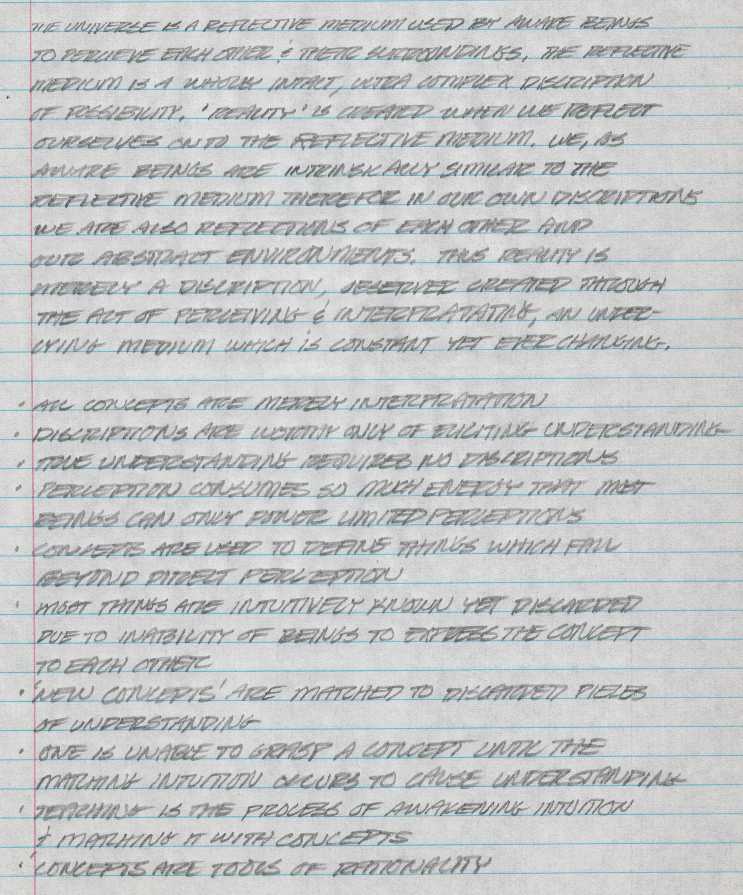 THE UNIVERSE IS A REFLECTIVE MEDIUM USED BY AWARE BEINGS
TO PERCIEVE EACH OTHER & THEIR SURROUNDINGS. THE REFLECTIVE
MEDIUM IS A WHOLLY INTACT, ULTRA COMPLEX DISCRIPTION
OF POSSIBILITY. 'REALITY' IS CREATED WHEN WE REFLECT
OURSELVES ONTO THE REFLECTIVE MEDIUM. WE, AS
AWARE BEINGS ARE INTRINSICALLY SIMILAR TO THE
REFLECTIVE MEDIUM THEREFOR IN OUR OWN DISCRIPTIONS
WE ARE ALSO REFLECTIONS OF EACH OTHER AND
OUR ABSTRACT ENVIRONMENTS. THUS REALITY IS
MERELY A DISCRIPTION, OBSERVER CREATED THROUGH
THE ACT OF PERCEIVING & INTERPRATATING, AN UNDER-
LYING MEDIUM WHICH IS CONSTANT YET EVER CHANGING.
• ALL CONCEPTS ARE MERELY INTERPRATATION
• DISCRIPTIONS ARE WORTHY ONLY OF ELICITING UNDERSTANDING
• TRUE UNDERSTANDING REQUIRES NO DISCRIPTIONS
• PERCEPTION CONSUMES SO MUCH ENERGY THAT MOST
BEINGS CAN ONLY POWER LIMITED PERCEPTIONS
• CONCEPTS ARE USED TO DEFINE THINGS WHICH FALL
BEYOND DIRECT PERCEPTION
• MOST THINGS ARE INTUITIVELY KNOWN YET DISCARDED
DUE TO INABILITY OF BEINGS TO EXPRESS THE CONCEPT
TO EACH OTHER
• 'NEW CONCEPTS' ARE MATCHED TO DISCARDED PIECES
OF UNDERSTANDING
• ONE IS UNABLE TO GRASP A CONCEPT UNTIL THE
MATCHING INTUITION OCCURS TO CAUSE UNDERSTANDING
• TEACHING IS THE PROCESS OF AWAKENING INTUITION
& MATCHING IT WITH CONCEPTS
• CONCEPTS ARE TOOLS OF RATIONALITY